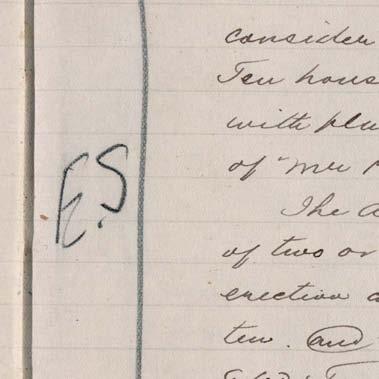 consider
Ten hous
with plu
of Mr
E.S
The a
of two or
erection a
ten. and